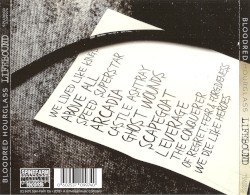 BLOODRED HOURGLASS LIFEBOUND
WE LIVED LIKE KINGS
ABOVE ALL
SPEED SUPERSTAR
ARCADIA
CASTLE ASHTRAY
GHOST WOUNDS
SCAPEGOAT
LEVERAGE
THE CONQUERER
OF REGRET, FEAR & GODLESSNESS
WE DIE LIKE HEROES
SPINEFARM
RECORDS
BLOODRED HOURGLASS LIFEBOUND